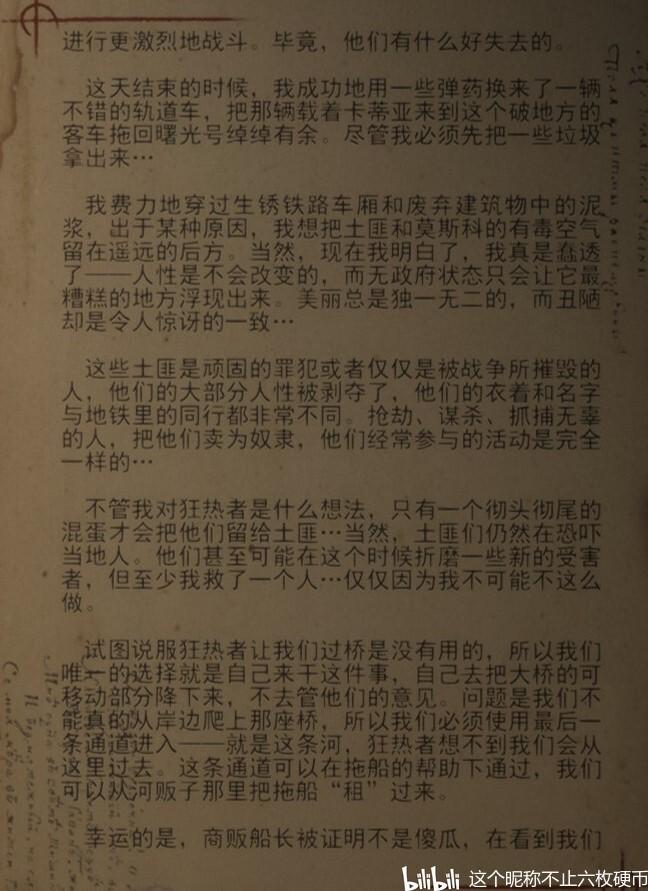 进行更激烈地战斗。毕竟，他们有什么好失去的。
这天结束的时候，我成功地用一些弹药换来了一辆
不错的轨道车，把那辆载着卡蒂亚来到这个破地方的
客车拖回曙光号绰绰有余。尽管我必须先把一些垃圾
拿出来…
我费力地穿过生锈铁路车厢和废弃建筑物中的泥
浆，出于某种原因，我想把土匪和莫斯科的有毒空气
留在遥远的后方。当然，现在我明白了，我真是蠢透
了——人性是不会改变的，而无政府状态只会让它最
糟糕的地方浮现出来。美丽总是独一无二的，而丑陋
却是令人惊讶的一致…
这些土匪是顽固的罪犯或者仅仅是被战争所摧毁的
人，他们的大部分人性被剥夺了，他们的衣着和名字
与地铁里的同行都非常不同。抢劫、谋杀、抓捕无辜
的人，把他们卖为奴隶，他们经常参与的活动是完全
一样的…
不管我对狂热者是什么想法，只有一个彻头彻尾的
混蛋才会把他们留给土匪…当然，土匪们仍然在恐吓
当地人。他们甚至可能在这个时候折磨一些新的受害
者，但至少我救了一个人…仅仅因为我不可能不这么
做。
试图说服狂热者让我们过桥是没有用的，所以我们
唯一的选择就是自己来干这件事，自己去把大桥的可
移动部分降下来，不去管他们的意见。问题是我们不
能真的从岸边爬上那座桥，所以我们必须使用最后一
条通道进入——就是这条河，狂热者想不到我们会从
这里过去。这条通道可以在拖船的帮助下通过，我们
可以从河贩子那里把拖船“租”过来。
幸运的是，商贩船长被证明不是傻瓜，在看到我们
bilibili 这个昵称不止六枚硬币